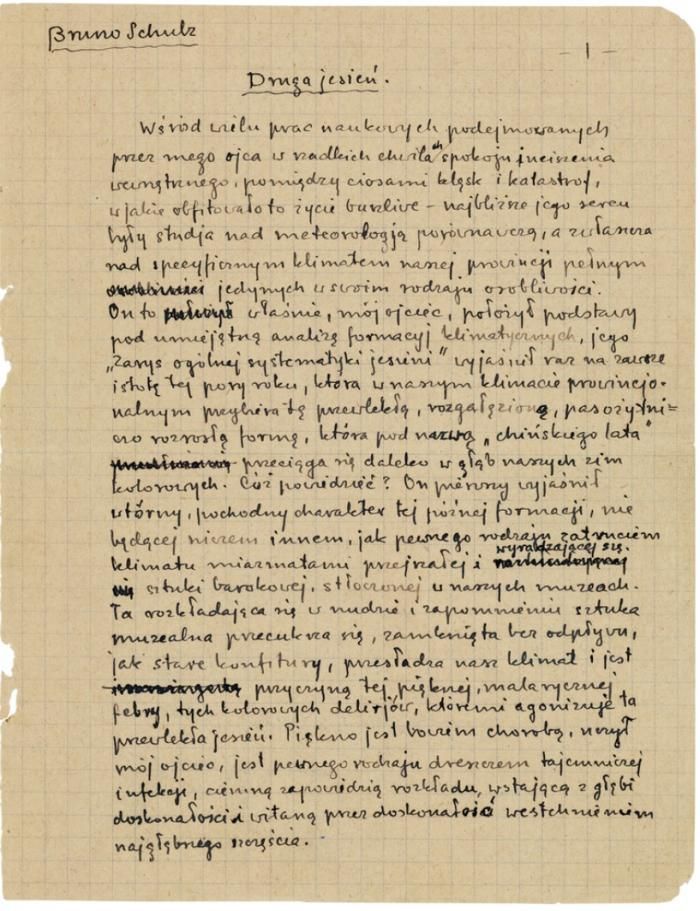 Bruno Schulz
- 1 -
Druga jesień.
Wśród wielu prac naukowych podejmowanych
przez mego ojca w rzadkich chwilach spokoju i uciszenia
wewnętrznego, pomiędzy ciosami klęsk i katastrof,
w jakie obfitowało to życie burzliwe – najbliższe jego sercu
były studja nad meteorologją porównawczą, a zwłaszcza
nad specyficznym klimatem naszej prowincji pełnym
jedynych w swoim rodzaju osobliwości.
On to właśnie, mój ojciec, położył podstawy
pod umiejętną analizę formacyj klimatycznych, jego
„Zarys ogólnej systematyki jesieni” wyjaśnił raz na zawsze
istotę tej pory roku, która w naszym klimacie prowincjo-
nalnym przybiera tę przewlekłą, rozgałęzioną, pasożytni-
czo rozrosłą formę, która pod nazwą „chińskiego lata”
przeciąga się daleko w głąb naszych zim
kolorowych. Cóż powiedzieć? On pierwszy wyjaśnił
wtórny, pochodny charakter tej późnej formacji, nie
będącej niczem innem, jak pewnego rodzaju zatruciem
klimatu miazmatami przejrzałej i wyradzającej się
sztuki barokowej, stłoczonej w naszych muzeach.
Ta rozkładająca się w nudzie i zapomnieniu sztuka
muzealna przecukrza się, zamknięta bez odpływu,
jak stare konfitury, przesładza nasz klimat i jest
przyczyną tej pięknej, malarycznej
febry, tych kolorowych delirjów, któremi agonizuje ta
przewlekła jesień. Piękno jest bowiem chorobą, uczył
mój ojciec, jest pewnego rodzaju dreszczem tajemniczej
infekcji, ciemną zapowiedzią rozkładu, wstającą z głębi
doskonałości i witaną przez doskonałość westchnieniem
najgłębszego szczęścia.